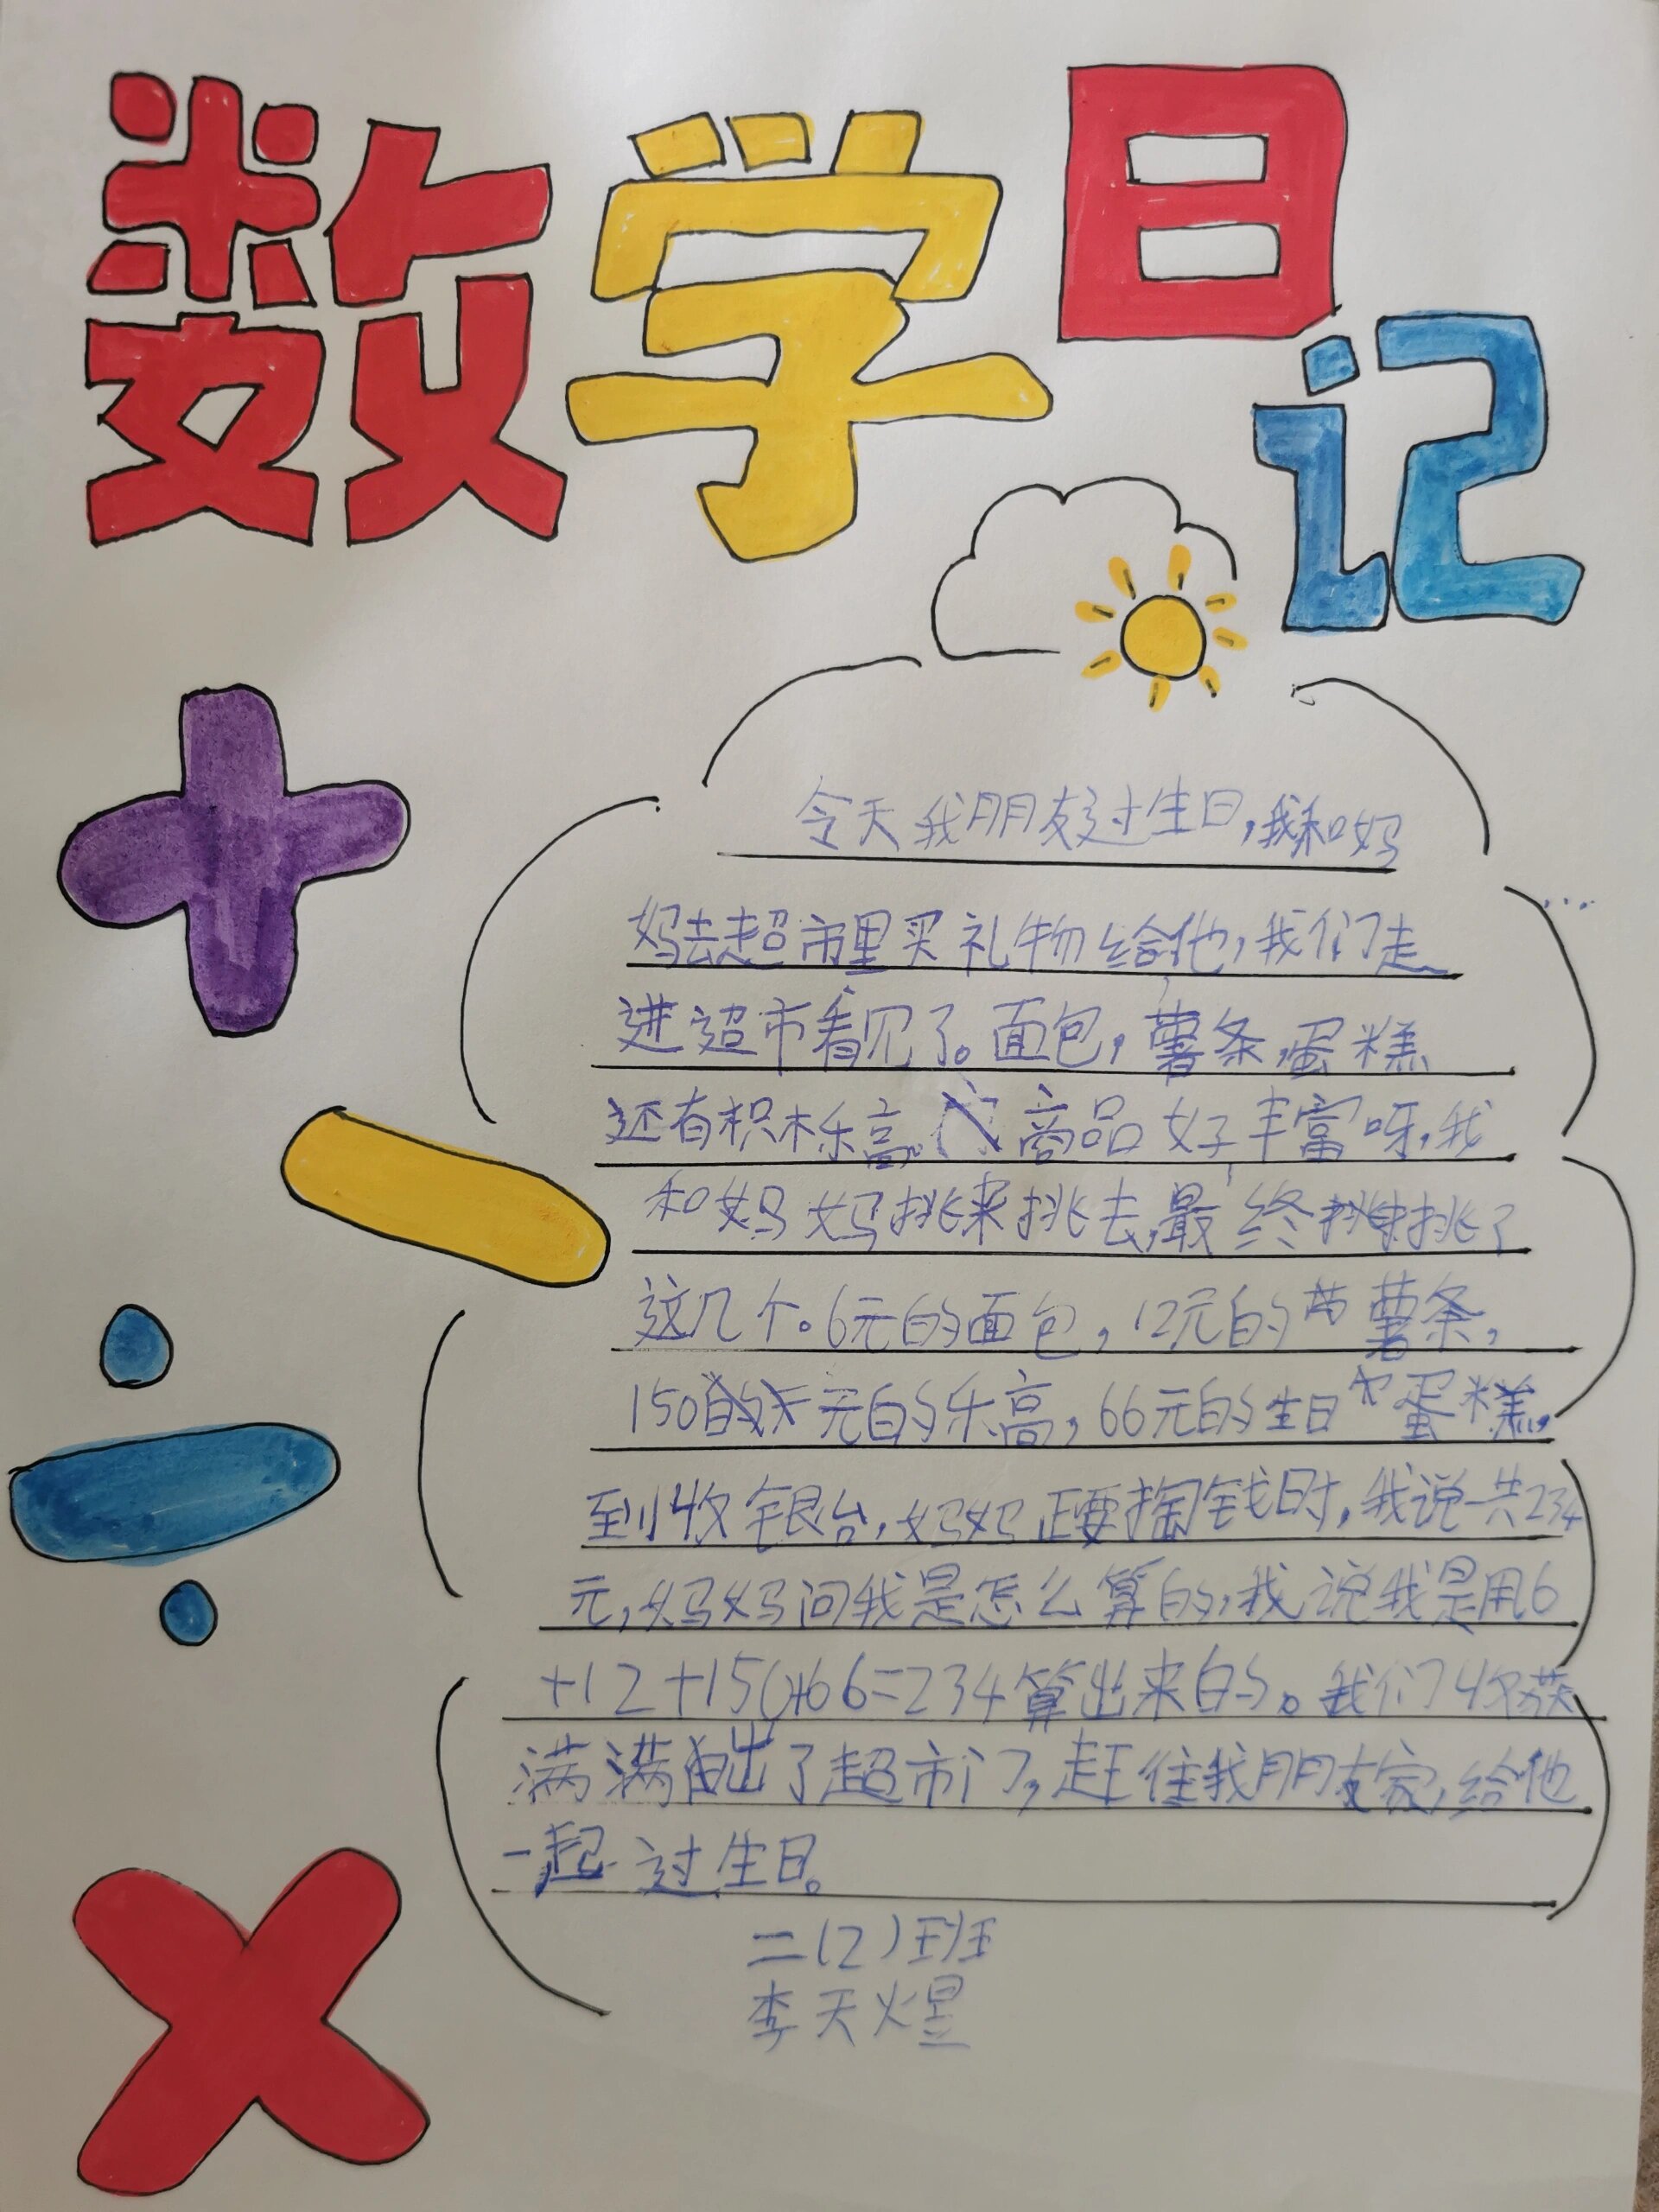 数学日记
今天我朋友过生日,我和妈
妈去超市里买礼物给他,我们走
进超市看见了。面包,薯条,蛋糕
还有积木乐高。商品好丰富呀,我
和妈妈挑来挑去,最终挑了
这几个。6元的面包,12元的薯条,
150元的乐高,66元的生日蛋糕,
到收银台,妈妈正要掏钱时,我说一共234
元,妈妈问我是怎么算的,我说我是用6
+12+150+66=234算出来的。我们收获
满满出了超市门,赶往我朋友家,给他
一起过生日。
二(2)班
李天煜